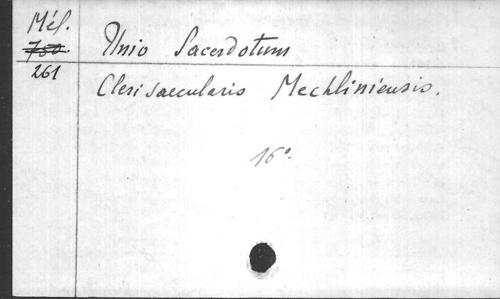 Mél.
750.
261
Unio Sacerdotum
Cleri saecularis Mechliniensis.
16°.